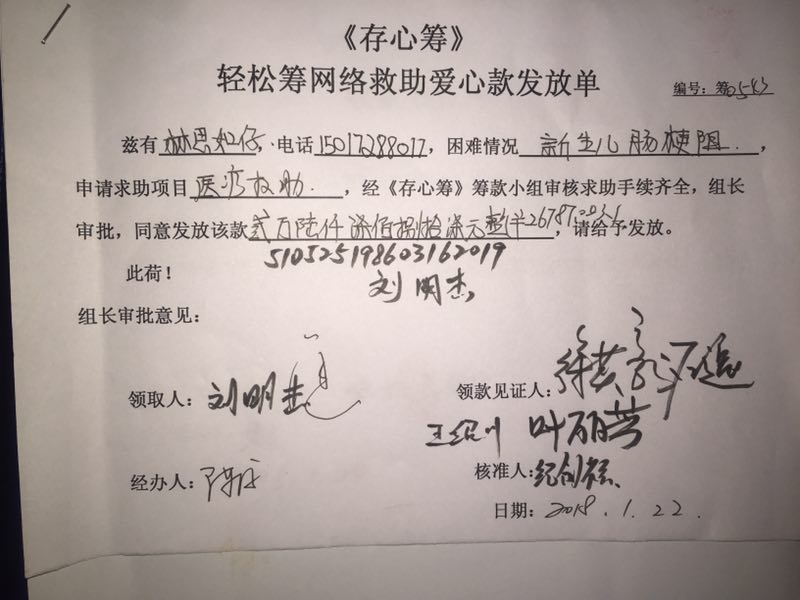 《存心筹》
轻松筹网络救助爱心款发放单
编号：筹0543
兹有林思如仔，电话15017288017，困难情况新生儿肠梗阻，
申请求助项目医疗救助，经《存心筹》筹款小组审核求助手续齐全，组长
审批，同意发放该款贰万陆仟柒佰捌拾柒元整，请给予发放。
510525198603162019
此荷！
刘明杰
组长审批意见：
领取人：刘明杰
领款见证人：
叶丽芸
经办人：
核准人：纪创
日期：2018.1.22.